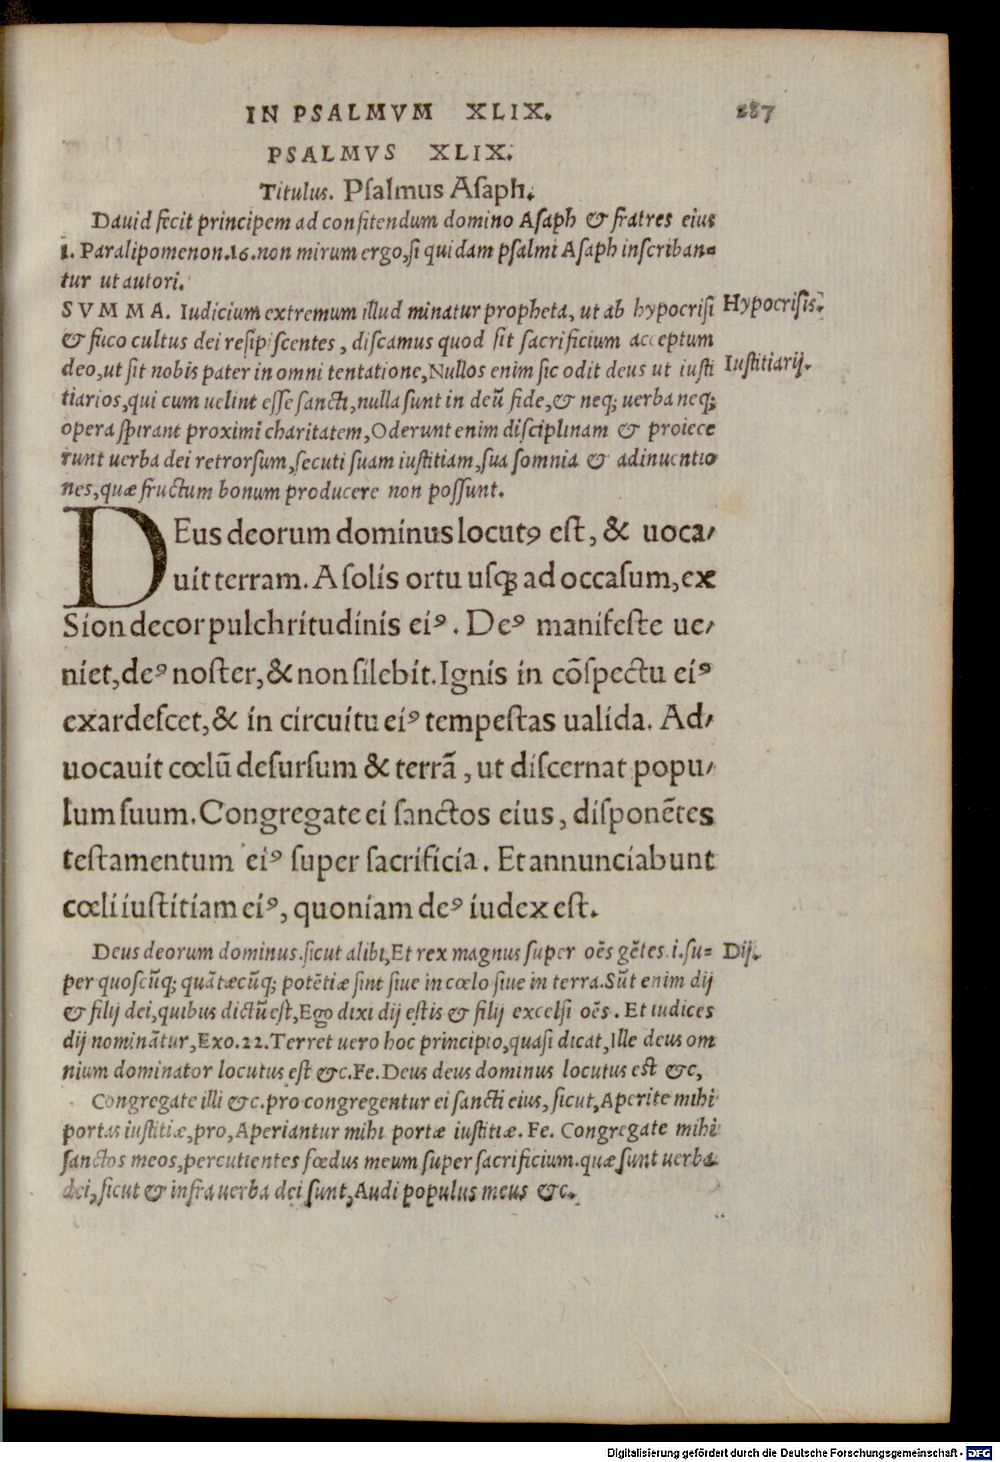 IN PSALMVM XLIX. 287
PSALMVS XLIX.
Titulus. Psalmus Asaph.
Dauid fecit principem ad confitendum domino Asaph & fratres eius
1. Paralipomenon.16.non mirum ergo,si quidam psalmi Asaph inscriban=
tur ut autori.
SVMMA. Iudicium extremum illud minatur propheta, ut ab hypocrisi
Hypocrisis.
& fuco cultus dei resipiscentes, discamus quod sit sacrificium acceptum
deo,ut sit nobis pater in omni tentatione,Nullos enim sic odit deus ut iusti
Iustitiarij.
tiarios,qui cum uelint esse sancti,nulla sunt in deū fide,& neq; uerba neq;
opera spirant proximi charitatem,Oderunt enim disciplinam & proiece
runt uerba dei retrorsum,secuti suam iustitiam,sua somnia & adinuentio
nes,quæ fructum bonum producere non possunt.
DEus deorum dominus locutꝰ est, & uoca/
uit terram. A solis ortu usq; ad occasum, ex
Sion decor pulchritudinis eiꝰ. Deꝰ manifeste ue/
niet, deꝰ noster, & non silebit. Ignis in cōspectu eiꝰ
exardescet, & in circuitu eiꝰ tempestas ualida. Ad/
uocauit cœlū desursum & terrā, ut discernat popu/
lum suum. Congregate ei sanctos eius, disponētes
testamentum eiꝰ super sacrificia. Et annunciabunt
cœli iustitiam eiꝰ, quoniam deꝰ iudex est.
Deus deorum dominus.sicut alibi,Et rex magnus super oēs gētes.i.su=
Dij.
per quoscūq; quātæcūq; potētiæ sint siue in cœlo siue in terra.Sūt enim dij
& filij dei,quibus dictū est,Ego dixi dij estis & filij excelsi oēs. Et iudices
dij nominātur,Exo.22.Terret uero hoc principio,quasi dicat,Ille deus om
nium dominator locutus est &c.Fe.Deus deus dominus locutus est &c,
Congregate illi &c.pro congregentur ei sancti eius,sicut,Aperite mihi
portas iustitiæ,pro,Aperiantur mihi portæ iustitiæ. Fe. Congregate mihi
sanctos meos,percutientes fœdus meum super sacrificium.quæ sunt uerba
dei,sicut & infra uerba dei sunt,Audi populus meus &c.
Digitalisierung gefördert durch die Deutsche Forschungsgemeinschaft - DFG